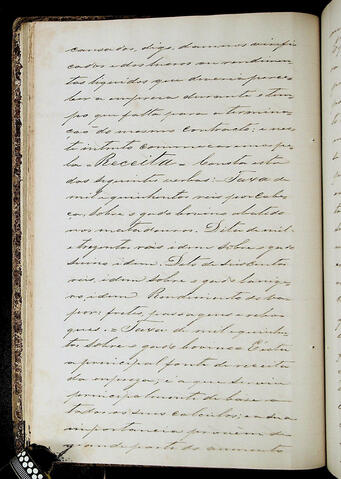 causados, digo, damnos verifi-
cados e dos lucros ou rendimen-
tos liquidos que deveria perce-
ber a empresa durante o tem-
po que falta para a termina-
ção do mesmo contracto; e nes-
te intento começaremos pe-
la = Receita = Consta esta
das seguintes verbas: Taxa de
mil e quinhentos reis por cabe-
ça, sobre o gado bovino abatido
nos matadouros. Dita de mil
e trezentos reis idem sobre o gado
suino idem. Dita de duzentos
reis, idem sobre o gado lanige-
ro idem. Rendimento do va-
por, fretes, passagens e rebo-
ques. = Taxa de mil e quinhen-
tos sobre o gado bovino. É esta
a principal fonte de receita
da empreza; e a que servio
principalmente de base a
todos os seus calculos; e a sua
importancia provém em
grande parte do augmento